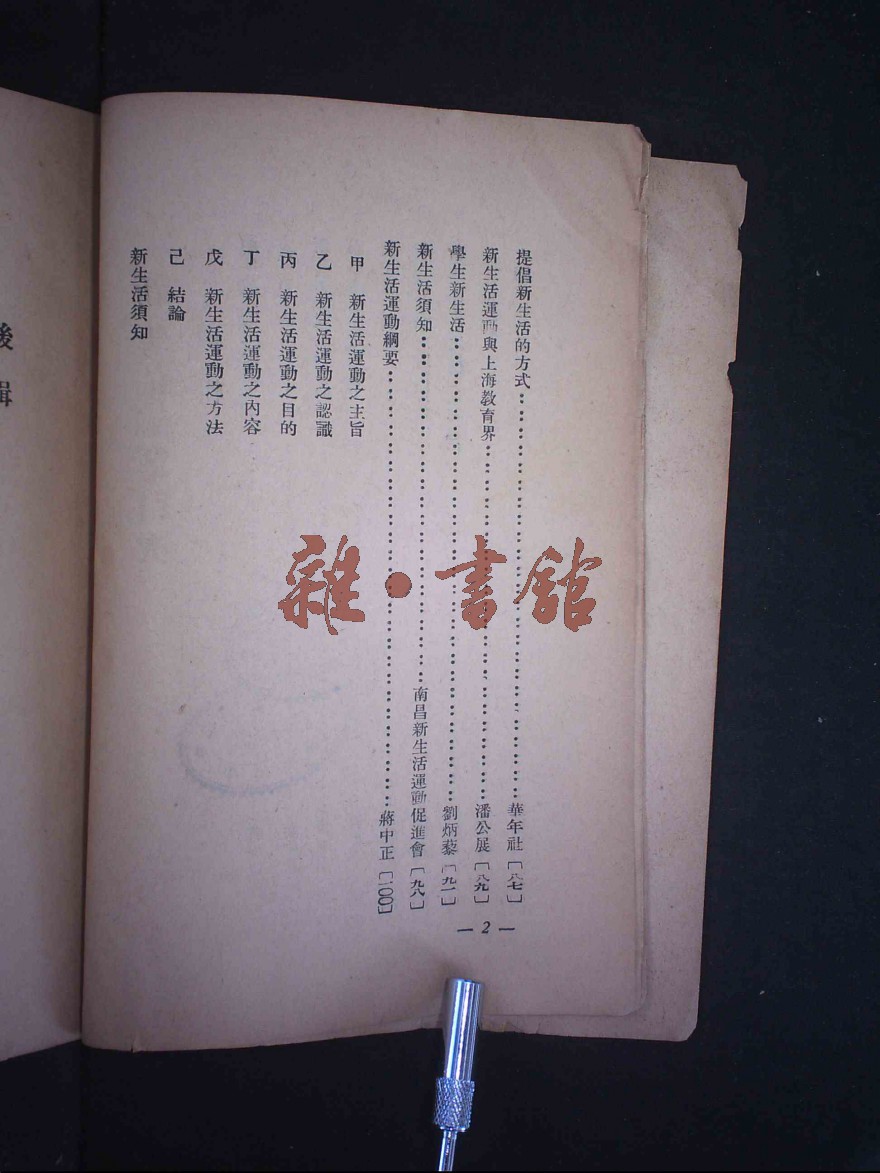 提倡新生活的方式……華年社〔八七〕
新生活運動與上海教育界……潘公展〔八九〕
學生新生活……劉炳藜〔九一〕
新生活須知……南昌新生活運動促進會〔九八〕
新生活運動綱要……蔣中正〔一〇〇〕
甲 新生活運動之主旨
乙 新生活運動之認識
丙 新生活運動之目的
丁 新生活運動之內容
戊 新生活運動之方法
己 結論
新生活須知
— 2 —
後輯
雜·書館